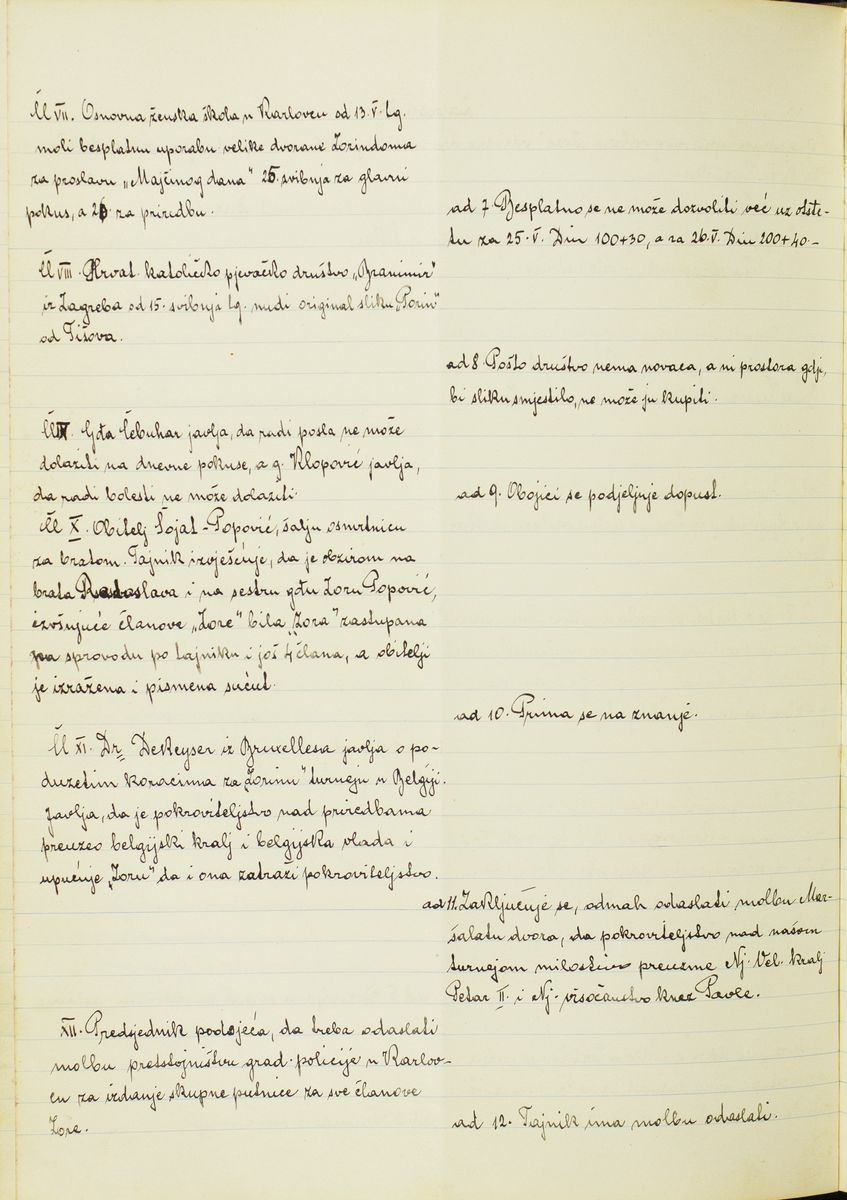 Čl VII. Osnovna ženska škola u Karlovcu od 13.V. tg.
moli besplatnu uporabu velike dvorane Zorindoma
za proslavu „Majčinog dana" 25. svibnja za glavni
pokus, a 26 za priredbu.
ad 7. Besplatno se ne može dozvoliti već uz otšte-
tu za 25.V. Din 100+30, a za 26.V. Din 200+40.-
Čl VIII. Hrvat. katoličko pjevačko društvo „Branimir"
iz Zagreba od 15. svibnja tg. nudi original sliku „Porin"
od Tišova.
ad 8. Pošto društvo nema novaca, a ni prostora gdje
bi sliku smjestilo, ne može ju kupiti.
Čl IX. Gđa Čebuhar javlja, da radi posla ne može
dolaziti na dnevne pokuse, a g. Klopović javlja,
da radi bolesti ne može dolaziti.
ad 9. Obojici se podjeljuje dopust.
Čl X. Obitelj Šojat-Popović, šalju osmrtnicu
za bratom. Tajnik izvješćuje, da je obzirom na
brata Radoslava i na sestru gđu Zoru Popović,
izvšujuće članove „Zore" bila „Zora" zastupana
na sprovodu po tajniku i još 4 člana, a obitelji
je izražena i pismena sućut.
ad 10. Prima se na znanje.
Čl XI. Dr. DeKeyser iz Bruxellesa javlja o po-
duzetim koracima za „Zorinu" turneju u Belgiji.
Javlja, da je pokroviteljstvo nad priredbama
preuzeo belgijski kralj i belgijska vlada i
upućuje „Zoru" da i ona zatraži pokroviteljstvo.
ad 11. Zaključuje se, odmah odaslati molbu Mar-
šalatu dvora, da pokroviteljstvo nad našom
turnejom milostivo preuzme Nj. Vel. kralj
Petar II. i Nj. visočanstvo knez Pavle.
XII. Predsjednik podsjeća, da treba odaslati
molbu pretstojništvu grad. policije u Karlov-
cu za izdanje skupne putnice za sve članove
Zore.
ad 12. Tajnik ima molbu odaslati.